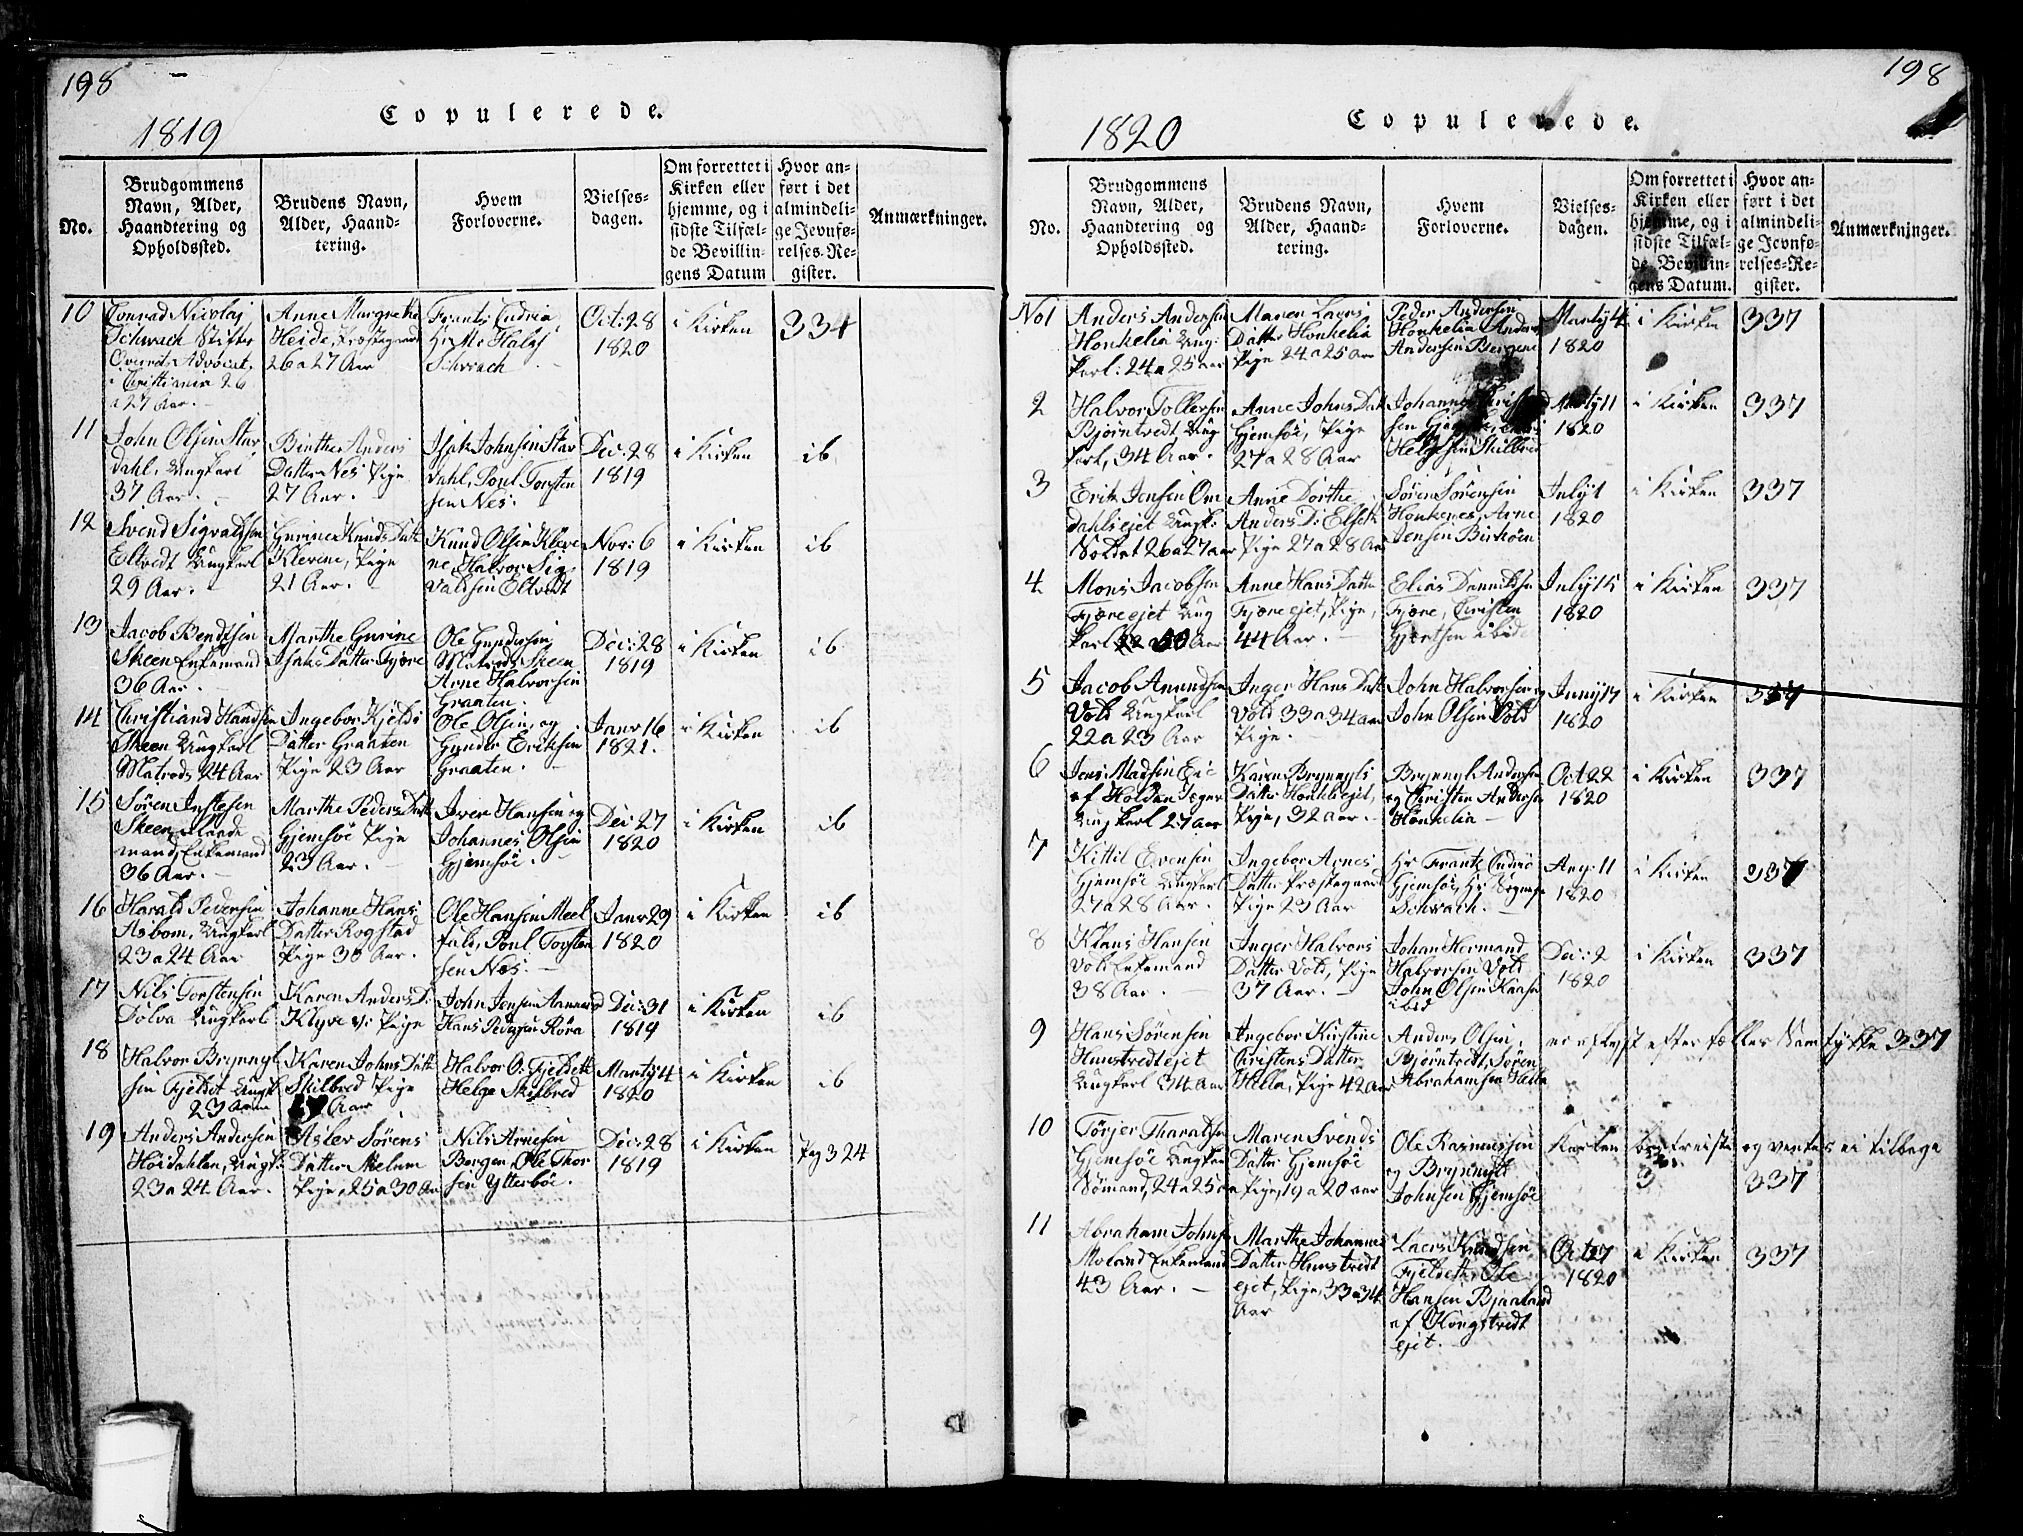 198
Copulerede.
1819
No.
Brudgommens
Navn, Alder,
Haandtering og
Opholdssted.
Brudens Navn,
Alder, Haand-
tering.
Hvem
Forloverne.
Vielses-
dagen.
Om forrettet i
Kirken eller
hjemme, og i
sidste Tilfæl-
de Bevillin-
gens Datum
Hvor an-
ført i det
almindeli-
ge Jevnfø-
relses-Re-
gister.
Anmærkninger.
10
Conrad Nicolaj
Schwach Stifts
Advocat,
i Christiania 26
a 27 Aar.
Anne Margrethe
Heide, Præstegaard
26 a 27 Aar
Frants
Schwach
Oct: 28
1820
i Kirken
334
11
John Olsen Stor
dahl, Ungkarl
37 Aar.
Birthe Anders
Datter Nes Pige
27 Aar.
Isak Johnsen Stor
dahl, Poul Torsten
sen Nes.
Dec: 28
1819
i Kirken
ib
12
Svend Sigvaldsen
Eltvedt Ungkarl
29 Aar.
Gurine Knuds Datt
Klevene, Pige
21 Aar.
Knud Olsen Kleve
ne, Halvor Sig
valdsen Eltvedt
Nov: 6
1819
i Kirken
ib
13
Jacob Bendtsen
Skeen Enkemand
36 Aar.
Marthe Gurine
Isaks Datter Fjære
Ole Gundersen
Matros Skeen
Arne Halvorsen
Graaten.
Dec: 28
1819
i Kirken
ib
14
Christiand Hansen
Skeen Ungkarl
Matros 24 Aar
Ingebor Kjelds
Datter Graaten
Pige 23 Aar
Ole Olsen og
Gunder Eriksen
Graaten.
Janr 16
1821.
i Kirken
ib
15
Søren
Skeen
mand, Enkemand
36 Aar.
Marthe Peders Datt
Gjemsøe Pige
23 Aar.
Iver Hansen og
Johannes Olsen
Gjemsøe.
Dec: 27
1820
i Kirken
ib
16
Harald Pedersen
Asbom, Ungkarl
23 a 24 Aar
Johanne Hans
Datter Rogstad
Pige 30 Aar.
Ole Hansen Meel
fald, Poul Torsten
sen Nes.
Janr 29
1820
i Kirken
ib
17
Nils Torstensen
Dolva Ungkarl
Karen Anders D:
Klyve Pige
John Jensen
Hans Pedersen Røra
Dec: 31
1819
i Kirken
ib
18
Halvor Brynnyl
sen Fjeldet Ungk
23 Aar
Karen Johns Datt
Skilbred Pige
Aar
Halvor O: Fjeldet
Helge Skilbred
Marty 4
1820
i Kirken
ib
19
Anders Andersen
Høidahlen, Ungk:
23 a 24 Aar.
Aslev Sørens
Datter Melum
Pige, 25 a 30 Aar
Nils Arnesen
Bergen, Ole Thor
sen Ytterbøe.
Dec: 28
1819
i Kirken
Pag 324
198
Copulerede.
1820
No.
Brudgommens
Navn, Alder,
Haandtering og
Opholdssted.
Brudens Navn,
Alder, Haand-
tering.
Hvem
Forloverne.
Vielses-
dagen.
Om forrettet i
Kirken eller
hjemme, og i
sidste Tilfæl-
de Bevillin-
gens Datum.
Hvor an-
ført i det
almindeli-
ge Jevnfø-
relses-Re-
gister.
Anmærkninger.
No 1
Anders Andersen
Honkelia Ung-
karl: 24 a 25 aar
Maren Laers
Datter Honkelia
Pige 24 a 25 Aar
Peder Andersen
Honkelia Anders
Andersen Bergene
Marty 4
1820
i Kirken
337
2
Halvor Tollefsen
Bjørntvedt, Ung
karl, 34 Aar.
Anne Johns Datt
Gjemsøe, Pige
27 a 28 Aar
Johannes
sen
Helgesen Skilbred
Marty 11
1820
i Kirken
337
3
Erik Jensen Om
dahlsejet Ungk:
Soldat 26 a 27 aar
Anne Dorthe
Anders D:
Pige 27 a 28 Aar
Søren Sørensen
Honkenes, Arne
Jensen
July 1
1820
i Kirken
337
4
Mons Jacobsen
Fjæreejet Ung
karl 50 Aar
Anne Hans Datter
Fjæreejet, Pige,
44 Aar.
Elias
Fjære, Christen
Gjertsen ibid
July 15
1820
i Kirken
337
5
Jacob Amundsen
Vold Ungkarl
22 a 23 Aar
Inger Hans Datt
Vold 33 a 34 aar
Pige.
John Halvorsen og
John Olsen Vold
Juny 17
1820
i Kirken
337
6
Jens Madsen
af Holdan
Ungkarl 27 Aar
Karen Brynnyls
Datter
Pige, 32 Aar.
Brynnyl Andersen
og Christen Andersen
Honkelia
Oct 22
1820
i Kirken
337
7
Kittil Evensen
Gjemsøe Ungkarl
27 a 28 Aar.
Ingebor Arnes
Datter Præstegaard
Pige 23 Aar
Hr Frants
Gjemsøe, Hr
Schwach.
Aug: 11
1820
i Kirken
337
8
Klaus Hansen
Vold Enkemand
38 Aar.
Inger Halvors
Datter Vold, Pige
37 Aar.
Johan Hermand
Halvorsen Vold
John Olsen Kaasa
ibid
Dec: 2
1820
i Kirken
337
9
Hans Sørensen
Hunstvedtejet
Ungkarl 34 Aar
Ingebor Kirstine
Christens Datter
Hella, Pige 42 Aar
Anders Olsen
Bjørntvedt, Søren
Abrahamsen Hella
er aflyst efter fælles Samtykke 337
10
Torjer Tharalsen
Gjemsøe Ungkarl
Sømand, 24 a 25 aar
Maren Svends
Datter Gjemsøe
Pige, 19 a 20 aar
Ole Rasmussen
og Brynnyl
Johnsen Gjemsøe
Karlen bortreist og ventes ei tilbage
337
11
Abraham Johns
Moland Enkemand
43 Aar.
Marthe Johannes
Datter Hunstvedt
ejet, Pige, 33 a 34
Aar
Laers Knudsen
Fjeldet, Ole
Hansen Bjaaland
af Hongstvedt
ejet.
Oct 27
1820
i Kirken
337